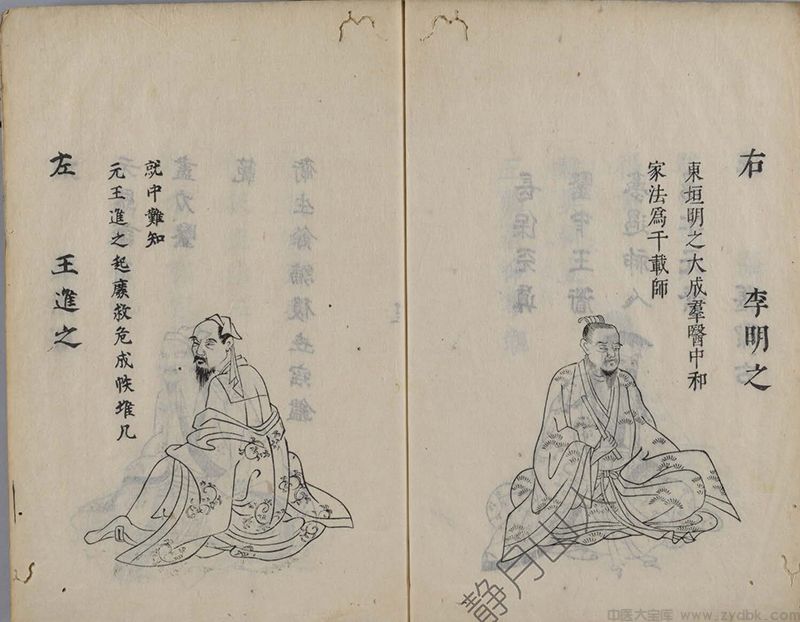 右 李明之
東垣明之大成羣醫中和
家法爲千載師
左 王進之
元王進之起廢救危成帙堆几
就中難知
静月山
中医大宝库 www.zydbk.com